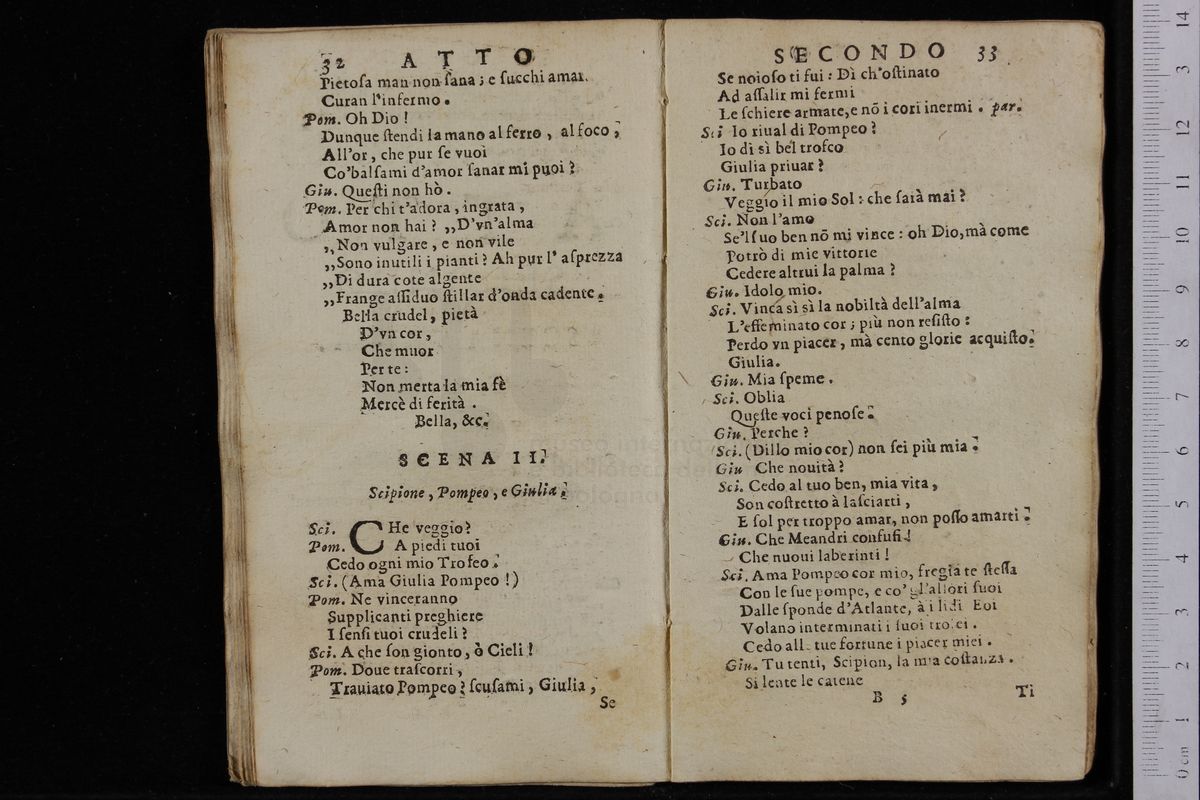 32 ATTO
Pietoſa man non ſana; e ſucchi amar.
Curan l'infermo.
Pom. Oh Dio!
Dunque ſtendi la mano al ferro, al foco;
All'or, che pur ſe vuoi
Co'balſami d'amor ſanar mi puoi?
Giu. Queſti non hò.
Pom. Per chi t'adora, ingrata,
Amor non hai? ,,D'vn'alma
,,Non vulgare, e non vile
,,Sono inutili i pianti? Ah pur l' aſprezza
,,Di dura cote algente
,,Frange aſſiduo ſtillar d'onda cadente.
Bella crudel, pietà
D'vn cor,
Che muor
Per te:
Non merta la mia fè
Mercè di ferità.
Bella, &c.
SCENA II.
Scipione, Pompeo, e Giulia.
Sci. CHe veggio?
Pom. A piedi tuoi
Cedo ogni mio Trofeo.
Sci. (Ama Giulia Pompeo!)
Pom. Ne vinceranno
Supplicanti preghiere
I ſenſi tuoi crudeli?
Sci. A che ſon gionto, ò Cieli!
Pom. Doue traſcorri,
Trauiato Pompeo? ſcuſami, Giulia,
Se
SECONDO 33
Se noioſo ti fui: Dì ch'oſtinato
Ad aſſalir mi fermi
Le ſchiere armate, e nō i cori inermi. par.
Sci Io riual di Pompeo?
Io di sì bel trofeo
Giulia priuar?
Giu. Turbato
Veggio il mio Sol: che ſarà mai?
Sci. Non l'amo
Se'l ſuo ben nō mi vince: oh Dio, mà come
Potrò di mie vittorie
Cedere altrui la palma?
Giu. Idolo mio.
Sci. Vinca sì sì la nobiltà dell'alma
L'effeminato cor; più non reſiſto:
Perdo vn piacer, mà cento glorie acquiſto.
Giulia.
Giu. Mia ſpeme.
Sci. Oblia
Queſte voci penoſe.
Giu. Perche?
Sci. (Dillo mio cor) non ſei più mia.
Giu Che nouità?
Sci. Cedo al tuo ben, mia vita,
Son coſtretto à laſciarti,
E ſol per troppo amar, non poſſo amarti.
Giu. Che Meandri confuſi!
Che nuoui laberinti!
Sci. Ama Pompeo cor mio, fregia te ſteſſa
Con le ſue pompe, e co' gl'allori ſuoi
Dalle ſponde d'Atlante, à i lidi Eoi
Volano interminati i ſuoi trofei.
Cedo alle tue fortune i piacer miei.
Giu. Tu tenti, Scipion, la mia coſtanza.
Si lente le catene
B 5 Ti
14
13
12
11
10
9
8
7
6
5
4
3
2
1
0 cm